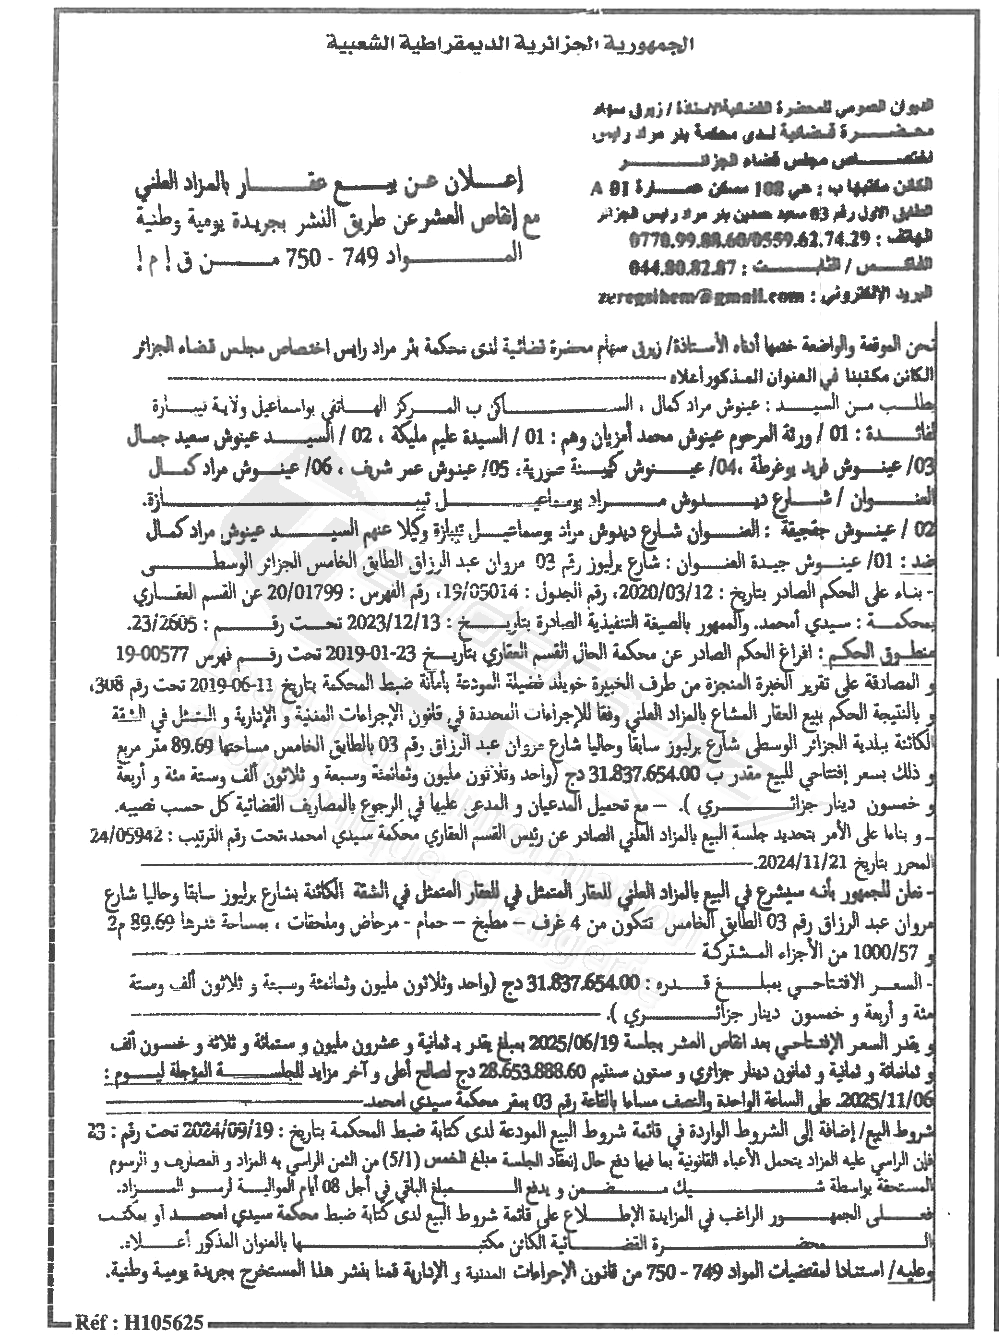 الجمهورية الجزائرية الديمقراطية الشعبية
الديوان العمومي للمحضرة القضائية الاستاذة / زيرق سهام
محضــرة قضائية لـدى محكمة بئر مراد رايس
اختصــاص مجلس قضاء الجزائــر
الكائن مكتبها ب : حي 108 مسكن عمــارة A 01
الطابق الاول رقم 03 سعيد حمدين بئر مراد رايس الجزائر
الهاتف : 0770.99.88.60/0559.62.74.29
الفاكــس / الثابــت : 044.80.82.87
البريد الإلكتروني : zeregsihem@gmail.com
إعــلان عـن بيــع عقــار بالمزاد العلني
مع إنقاص العشر عن طريق النشر بجريدة يومية وطنية
المــواد 749 - 750 مــن ق إ م إ
نحن الموقعة والواضعة ختمها أدناه الأستاذة/ زيرق سهام محضرة قضائية لدى محكمة بئر مراد رايس اختصاص مجلس قضاء الجزائر
الكائن مكتبنا في العنوان المذكور أعلاه
بطلـب مـن السيـد : عينوش مراد كمال ، الســاكن ب المـركز الهـاتفي بواسماعيل ولاية تيبـازة
لفائـدة : 01 / ورثة المرحوم عينوش محمد أمزيان وهم : 01 / السيدة عليم مليكة ، 02 / السيــد عينوش سعيد جمال
03/ عينـوش فريد يوغرطة ،04/ عينـوش كهينـة صورية، 05/ عينوش عمر شريف ، 06/ عينـوش مراد كمـال
العنــوان / شـارع ديـدوش مــراد بوسماعيــل تيبــازة.
02 / عينوش حقجيقة : العنــوان شارع ديدوش مراد بوسماعيـل تيبازة وكيلا عنهم السيــد عينوش مراد كمال
ضد : 01/ عينــوش جيدة العنـوان : شارع برليوز رقم 03 مروان عبد الرزاق الطابق الخامس الجزائر الوسطــى
- بنـاء على الحكم الصادر بتاريخ : 2020/03/12، رقم الجدول : 19/05014، رقم الفهرس : 20/01799 عن القسم العقـاري
بمحكمـة : سيدي أمحمد. والممهور بالصيغة التنفيذية الصادرة بتاريــخ : 2023/12/13 تحـت رقــم : 23/2605.
منطـوق الحكـم : افراغ الحكم الصادر عن محكمة الحال القسم العقاري بتاريـخ 23-01-2019 تحت رقـم فهرس 00577-19
و المصادقة على تقرير الخبرة المنجزة من طرف الخبيرة خويلد فضيلة المودعة بأمانة ضبط المحكمة بتاريخ 11-06-2019 تحت رقم 308،
و بالنتيجة الحكم ببيع العقار المشاع بالمزاد العلني وفقا للإجراءات المحددة في قانون الإجراءات المدنية و الإدارية و المتمثل في الشقة
الكائنة ببلدية الجزائر الوسطى شارع برليوز سابقا وحاليا شارع مروان عبد الرزاق رقم 03 بالطابق الخامس مساحتها 89.69 متر مربع
و ذلك بسعر إفتتاحي للبيع مقدر ب 31.837.654.00 دج (واحد وثلاثون مليون وثمانمئة وسبعة و ثلاثون ألف وستة مئة و أربعة
و خمسون دينار جزائــري ). – مع تحميل المدعيان و المدعى عليها في الرجوع بالمصاريف القضائية كل حسب نصيبه.
ـ و بناءا على الأمر بتحديد جلسة البيع بالمزاد العلني الصادر عن رئيس القسم العقاري محكمة سيدي امحمد،تحت رقم الترتيب : 24/05942
المحرر بتاريخ 2024/11/21.
- نعلن للجمهور بأنه سيشرع في البيع بالمزاد العلني للعقار المتمثل في للعقار المتمثل في الشقة الكائنة بشارع برليوز سابقا وحاليا شارع
مروان عبد الرزاق رقم 03 الطابق الخامس تتكون من 4 غرف – مطبخ – حمام - مرحاض وملحقات ، بمساحة قدرها 89.69 م2
و 1000/57 من الأجزاء المشتركة
- السعـر الافتتـاحـي بمبلــغ قــدره : 31.837.654.00 دج (واحد وثلاثون مليون وثمانمئة وسبعة و ثلاثون ألف وستة
مئة و أربعة و خمسون دينار جزائــري ).
و يقدر السعر الإفتتـاحي بعد انقاص العشر بجلسة 2025/06/19 بمبلغ يقدر بـ ثمانية و عشرون مليون و ستمائة و ثلاثة و خمسون ألف
و ثمانمائة و ثمانية و ثمانون دينار جزائري و ستون سنتيم 28.653.888.60 دج لصالح أعلى و آخر مزايد للجلســة المؤجلة ليــوم :
2025/11/06. على الساعة الواحدة والنصف مساءا بالقاعة رقم 03 بمقر محكمة سيدي امحمد.
شروط البيع/ إضافة إلى الشروط الواردة في قائمة شروط البيع المودعة لدى كتابة ضبط المحكمة بتاريخ : 2024/09/19 تحت رقم : 23
فإن الراسي عليه المزاد يتحمل الأعباء القانونية بما فيها دفع حال إنعقاد الجلسة مبلغ الخمس (5/1) من الثمن الراسي به المزاد و المصاريف و الرسوم
المستحقة بواسطة شــيك مــضمن و يدفع المــبلغ الباقي في أجل 08 أيام الموالية لرسـو المــزاد.
فعلـى الجمهــور الراغب في المزايدة الإطــلاع على قائمة شروط البيع لدى كتابة ضبط محكمة سيدي امحمـد أو بمكتـب
المــحضــرة القضــائية الكائن مكتبــها بالعنوان المذكور أعــلاه.
وعليه/ استنادا لمقتضيات المواد 749 - 750 من قانون الإجراءات المدنية و الإدارية قمنا بنشر هذا المستخرج بجريدة يومية وطنية.
Réf : H105625